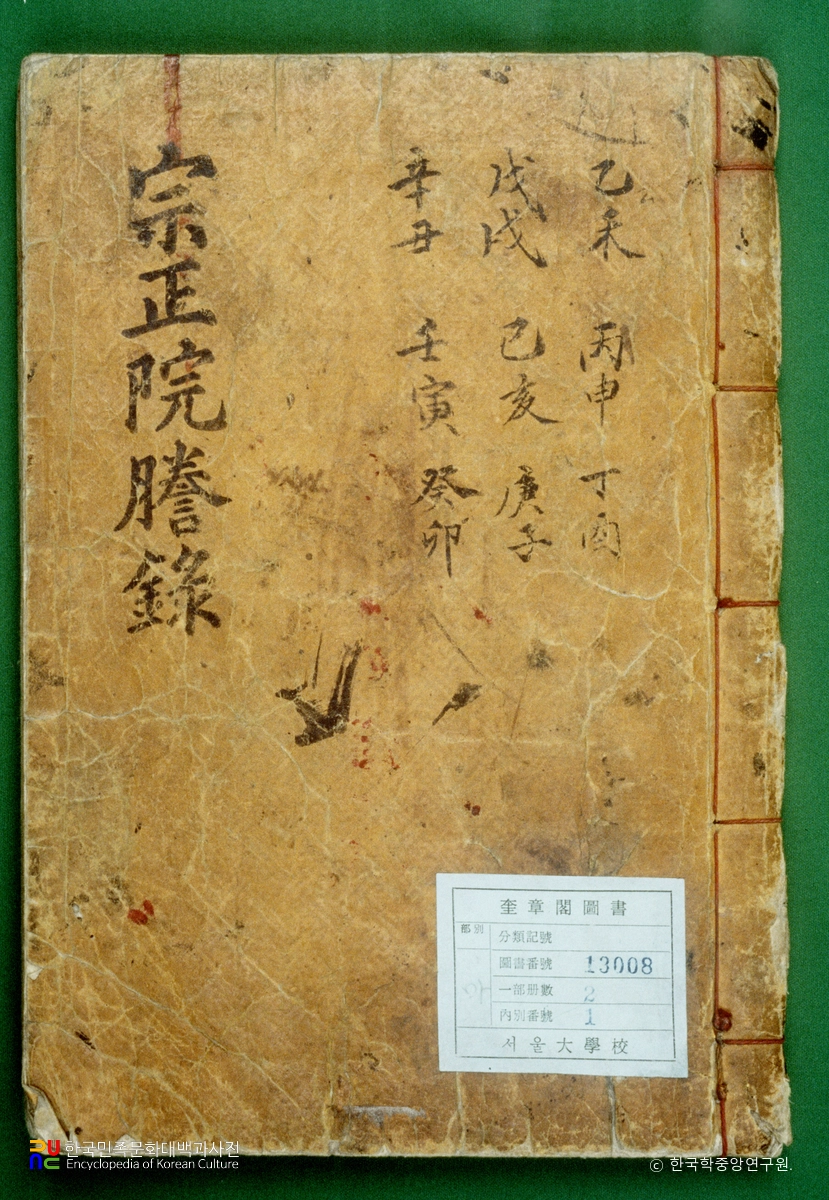 乙未 丙申 丁酉
戊戌 己亥 庚子
辛丑 壬寅 癸卯
宗正院謄錄
奎章閣圖書
部別
分類記號
圖書番號 13008
一部册數 2
內別番號 1
서울大學校
한국민족문화대백과사전
Encyclopedia of Korean Culture
© 한국학중앙연구원.